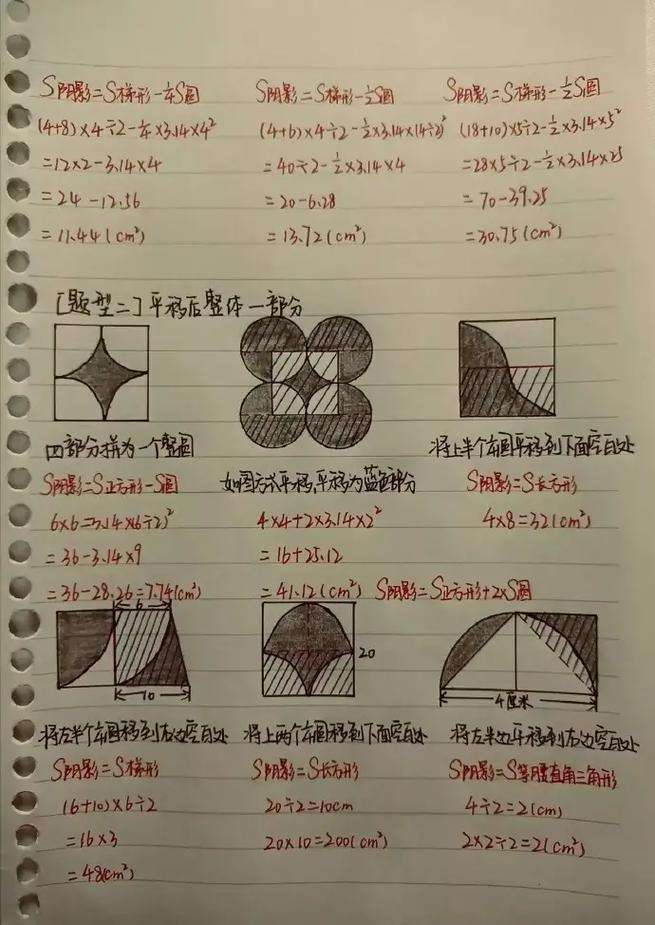 S阴影=S梯形-¼S圆
(4+8)×4÷2-¼×3.14×4²
=12×2-3.14×4
=24-12.56
=11.44(cm²)
S阴影=S梯形-½S圆
(4+6)×4÷2-½×3.14×(4÷2)²
=40÷2-½×3.14×4
=20-6.28
=13.72(cm²)
S阴影=S梯形-½S圆
(18+10)×5÷2-½×3.14×5²
=28×5÷2-½×3.14×25
=70-39.25
=30.75(cm²)
[题型二]平移后整体一部分
四部分拼为一个整圆
S阴影=S正方形-S圆
6×6=3.14×(6÷2)²
=36-3.14×9
=36-28.26=7.74(cm²)
如图方式平移,平移为蓝色部分
4×4+2×3.14×2²
=16+25.12
=41.12(cm²)
S阴影=S正方形+2×S圆
将上半个¼圆平移到下面空白处
S阴影=S长方形
4×8=32(cm²)
6
10
20
4厘米
将左半个¼圆移到右边空白处
S阴影=S梯形
(6+10)×6÷2
=16×3
=48(cm²)
将上两个¼圆移到下面空白处
S阴影=S长方形
20÷2=10cm
20×10=200(cm²)
将左半边平移到右边空白处
S阴影=S等腰直角三角形
4÷2=2(cm)
2×2÷2=2(cm²)